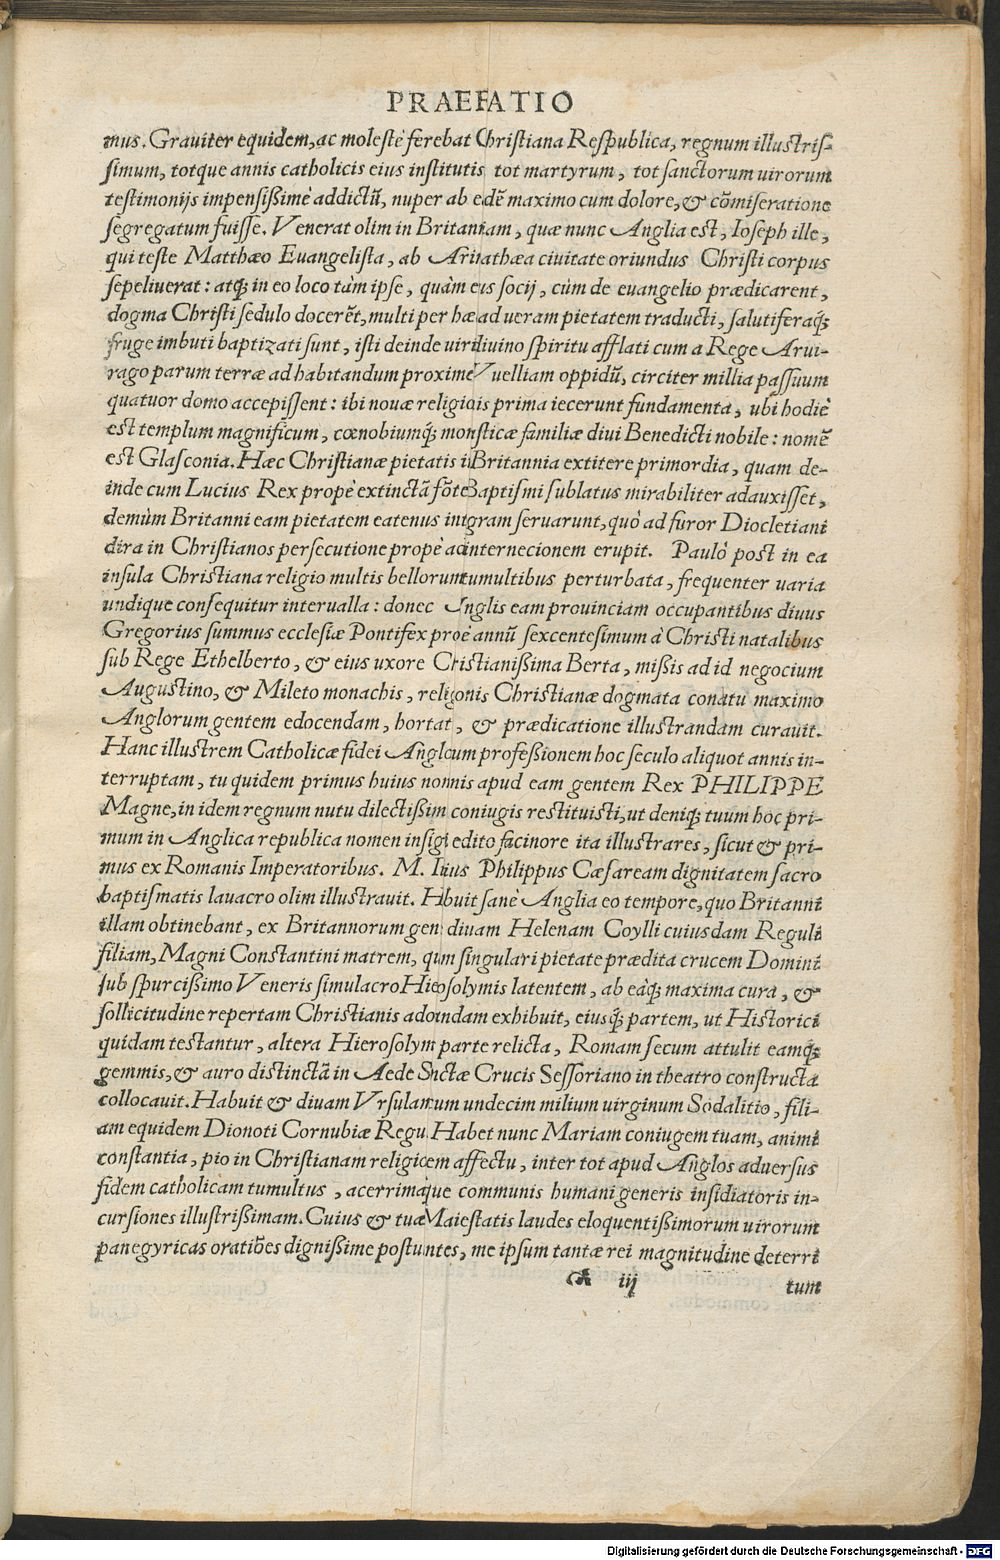 PRAEFATIO
mus. Grauiter equidem, ac molestè ferebat Christiana Respublica, regnum illustris-
simum, totque annis catholicis eius institutis tot martyrum, tot sanctorum uirorum
testimonijs impensißimè addictũ, nuper ab edẽ maximo cum dolore, & cõmiseratione
segregatum fuisse. Venerat olim in Britaniam, quæ nunc Anglia est, Ioseph ille,
qui teste Matthæo Euangelista, ab Arimathæa ciuitate oriundus Christi corpus
sepeliuerat: atq; in eo loco tàm ipse, quàm eius socij, cùm de euangelio prædicarent,
dogma Christi sedulo docerẽt, multi per hæc ad ueram pietatem traducti, salutiferaq́;
fruge imbuti baptizati sunt, isti deinde uiri diuino spiritu afflati cum a Rege Arui-
rago parum terræ ad habitandum proximè Vuelliam oppidũ, circiter millia passuum
quatuor domo accepissent: ibi nouæ religiõis prima iecerunt fundamenta, ubi hodiè
est templum magnificum, cœnobiumq́; monsticæ familiæ diui Benedicti nobile: nomẽ
est Glasconia. Hæc Christianæ pietatis i Britannia extitere primordia, quam de-
inde cum Lucius Rex propè extinctã fõte Baptismi sublatus mirabiliter adauxisset,
demùm Britanni eam pietatem eatenus intgram seruarunt, quò ad furor Diocletiani
dira in Christianos persecutione propè ad internecionem erupit. Paulò post in ea
insula Christiana religio multis bellorum tumultibus perturbata, frequenter uaria
undique consequitur interualla: donec Anglis eam prouinciam occupantibus diuus
Gregorius summus ecclesiæ Pontifex proè annũ sexcentesimum à Christi natalibus
sub Rege Ethelberto, & eius uxore Cristianißima Berta, mißis ad id negocium
Augustino, & Mileto monachis, religonis Christianæ dogmata conatu maximo
Anglorum gentem edocendam, hortat, & prædicatione illustrandam curauit.
Hanc illustrem Catholicæ fidei Anglcum profeßionem hoc seculo aliquot annis in-
terruptam, tu quidem primus huius nomnis apud eam gentem Rex PHILIPPE
Magne, in idem regnum nutu dilectißim coniugis restituisti, ut deniq; tuum hoc pri-
mum in Anglica republica nomen insigi edito facinore ita illustrares, sicut & pri-
mus ex Romanis Imperatoribus. M. Iulius Philippus Cæsaream dignitatem sacro
baptismatis lauacro olim illustrauit. Hbuit sanè Anglia eo tempore, quo Britanni
illam obtinebant, ex Britannorum gen diuam Helenam Coylli cuiusdam Reguli
filiam, Magni Constantini matrem, qum singulari pietate prædita crucem Domini
sub spurcißimo Veneris simulacro Hieosolymis latentem, ab eàq; maxima cura, &
sollicitudine repertam Christianis adorndam exhibuit, eiusq́; partem, ut Historici
quidam testantur, altera Hierosolym parte relicta, Romam secum attulit eamq́;
gemmis, & auro distinctã in Aede Snctæ Crucis Sessoriano in theatro constructa
collocauit. Habuit & diuam Vrsulam cum undecim milium uirginum Sodalitio, fili-
am equidem Dionoti Cornubiæ Regu Habet nunc Mariam coniugem tuam, animi
constantia, pio in Christianam religioem affectu, inter tot apud Anglos aduersus
fidem catholicam tumultus, acerrimaque communis humani generis insidiatoris in-
cursiones illustrißimam. Cuius & tuæ Maiestatis laudes eloquentißimorum uirorum
panegyricas oratiões dignißime postuntes, me ipsum tantæ rei magnitudine deterri
iij
tum
Digitalisierung gefördert durch die Deutsche Forschungsgemeinschaft - DFG